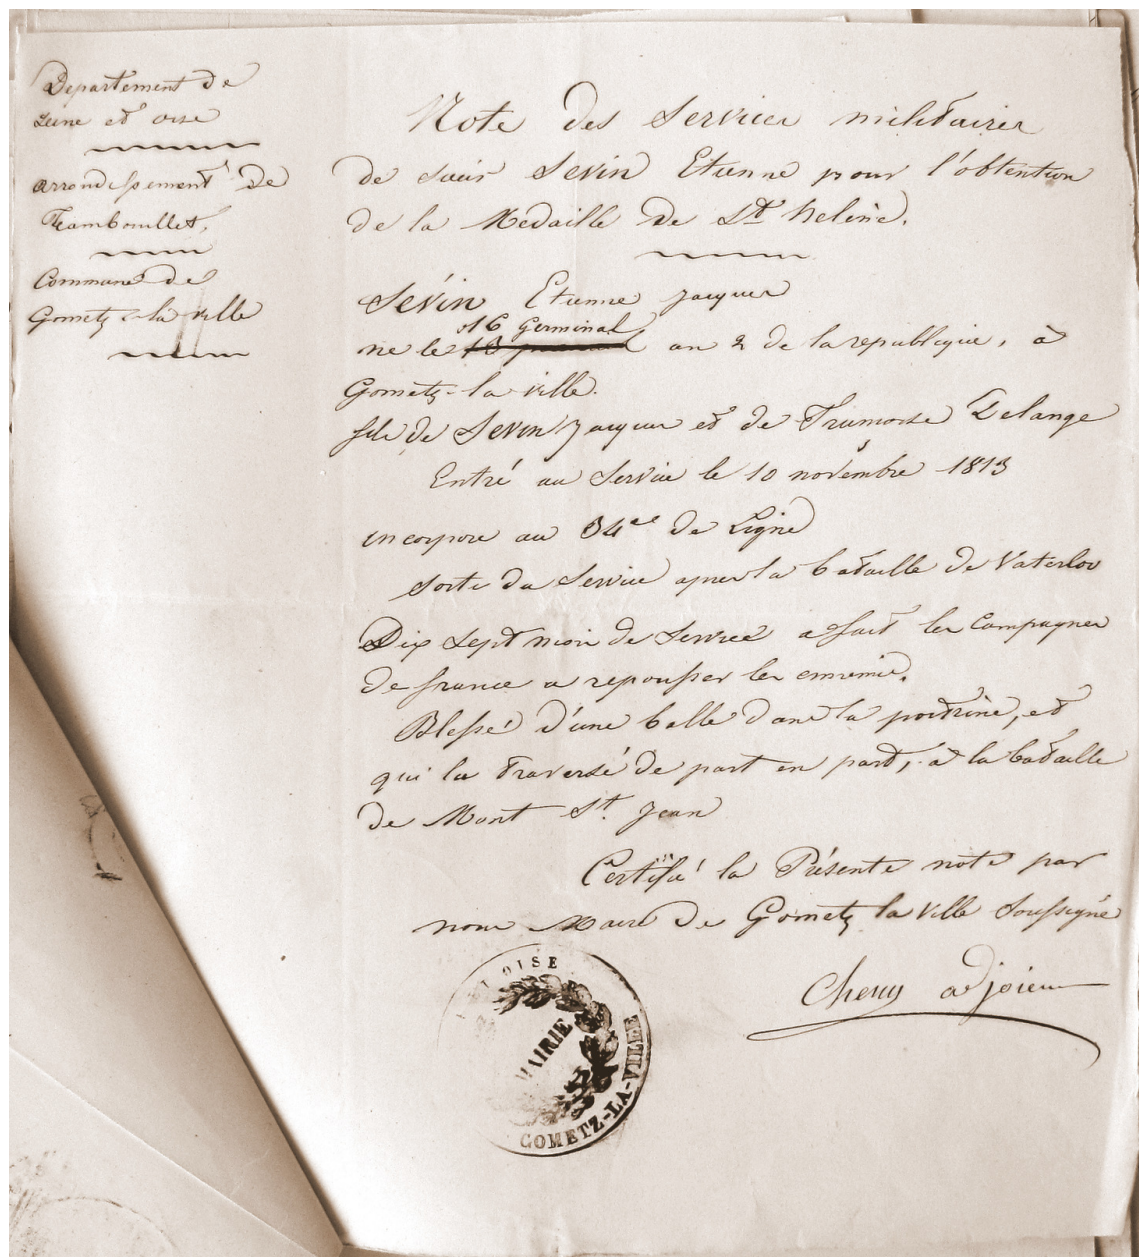 Departement de
Seine et oise
arrondissement de
Rambouillet,
Commune de
Gometz-la-ville
Note des Services militaires
de sieur Sevin Etienne pour l'obtention
de la Medaille de Ste helene.
Sévin Etienne jacques
16 Germinal
né le an 2 de la republique, à
Gometz-la-ville.
fils de Sevin jacques et de Delange
Entré au Service le 10 novembre 1813
incorpore au de Ligne
sorti du Service apres la bataille de Vaterloo
Dix sept mois de Service a fait les Campagnes
de france a repousser les ennemis.
Blessé d'une balle dans la poitrine, et
qui la traversé de part en part, à la bataille
de Mont St. Jean
Certifié la Présente note par
nous Maire de Gometz la Ville Soussigné
adjoint
OISE
MAIRIE
GOMETZ-LA-VILLE